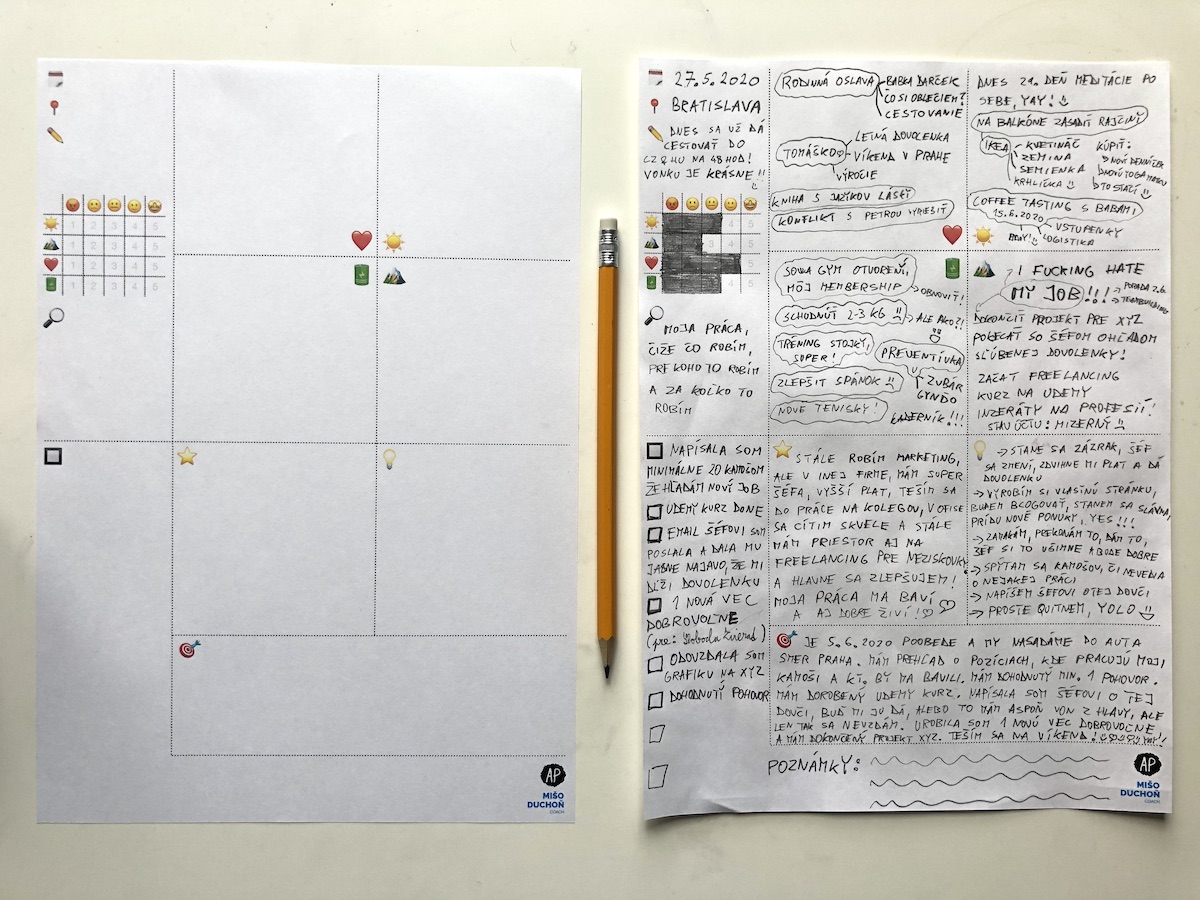 1 2 3 4 5
1 2 3 4 5
1 2 3 4 5
1 2 3 4 5
AP
MIŠO
DUCHOŇ
COACH
27.5.2020
BRATISLAVA
DNES SA UŽ DÁ
CESTOVAŤ DO
CZ & HU NA 48 HOD!
VONKU JE KRÁSNE!!
4 5
3 4 5
5
4 5
MOJA PRÁCA,
ČIŽE ČO ROBÍM,
PRE KOHO TO ROBÍM
A ZA KOĽKO TO
ROBÍM
RODINNÁ OSLAVA
BABKA DARČEK
ČO SI OBLEČIEM?
CESTOVANIE
TOMÁŠKO
LETNÁ DOVOLENKA
VÍKEND V PRAHE
VÝROČIE
KNIHA 5 JAZYKOV LÁSKY
KONFLIKT S PETROU VYRIEŠIŤ
DNES 21. DEŇ MEDITÁCIE PO
SEBE, YAY!
NA BALKÓNE ZASADIŤ RAJČINY
IKEA
KVETINÁČ
ZEMINA
SEMIENKA
KRHLIČKA
KÚPIŤ:
NOVÝ DENNÍČEK
NOVÚ YOGA
TO STAČÍ
COFFEE TASTING S BABAMI
15.6.2020
VSTUPENKY
LOGISTIKA
GYM OTVORENÍ,
MÔJ MEMBERSHIP
OBNOVIŤ!
SCHODNÚŤ 2-3 KG
ALE AKO?!
TRÉNING STOJKY,
SUPER!
PREVENTÍVKA
ZUBÁR
GYNDO
KADERNÍK!!!
ZLEPŠIŤ SPÁNOK
NOVÉ TENISKY!
I FUCKING HATE
MY JOB!!!
PORADA 2.6.
TEAMBUILDING
DOKONČIŤ PROJEKT PRE XYZ
POKECAŤ SO ŠÉFOM OHĽADOM
SĽÚBENEJ DOVOLENKY!
ZAČAŤ FREELANCING
KURZ NA UDEMY
INZERÁTY NA PROFESII!
STAV ÚČTU: MIZERNÝ
NAPÍSALA SOM
MINIMÁLNE 20 KAMOŠOM
ŽE HĽADÁM NOVÝ JOB
UDEMY KURZ DONE
EMAIL ŠÉFOVI SOM
POSLALA A DALA MU
JASNE NAJAVO, ŽE MI
DĽŽI DOVOLENKU
1 NOVÁ VEC
DOBROVOĽNE
(pre: Sloboda Zvierat)
ODOVZDALA SOM
GRAFIKU NA XYZ
DOHODNUTÝ POHOVOR
STÁLE ROBÍM MARKETING,
ALE V INEJ FIRME, MÁM SUPER
ŠÉFA, VYŠŠÍ PLAT, TEŠÍM SA
DO PRÁCE NA KOLEGOV, V OFISE
SA CÍTIM SKVELE A STÁLE
MÁM PRIESTOR AJ NA
FREELANCING PRE NEZISKOVKY
A HLAVNE SA ZLEPŠUJEM!
MOJA PRÁCA MA BAVÍ
A AJ DOBRE ŽIVÍ!
STANE SA ZÁZRAK, ŠÉF
SA ZMENÍ, ZDVIHNE MI PLAT A DÁ
DOVOLENKU
VYROBÍM SI VLASTNÚ STRÁNKU,
BUDEM BLOGOVAŤ, STANEM SA SLÁVNA,
PRÍDU NOVÉ PONUKY, YES!!!
ZAMAKÁM, PREKONÁM TO, DÁM TO,
ŠÉF SI TO VŠIMNE A BUDE DOBRE
SPÝTAM SA KAMOŠOV, ČI NEVEDIA
O NEJAKEJ PRÁCI
NAPÍŠEM ŠÉFOVI O TEJ DOVČI
PROSTE QUITNEM, YOLO
JE 5.6.2020 POOBEDE A MY NASADÁME DO AUTA
SMER PRAHA. MÁM PREHĽAD O POZÍCIACH, KDE PRACUJÚ MOJI
KAMOŠI A KT. BY MA BAVILI. MÁM DOHODNUTÝ MIN. 1 POHOVOR.
MÁM DOROBENÝ UDEMY KURZ. NAPÍSALA SOM ŠÉFOVI O TEJ
DOVČI, BUĎ MI JU DÁ, ALEBO TO MÁM ASPOŇ VON Z HLAVY, ALE
LEN TAK SA NEVZDÁM. UROBILA SOM 1 NOVÚ VEC DOBROVOĽNE
A MÁM DOKONČENÝ PROJEKT XYZ. TEŠÍM SA NA VÍKEND! YAY!
POZNÁMKY:
AP
MIŠO
DUCHOŇ
COACH